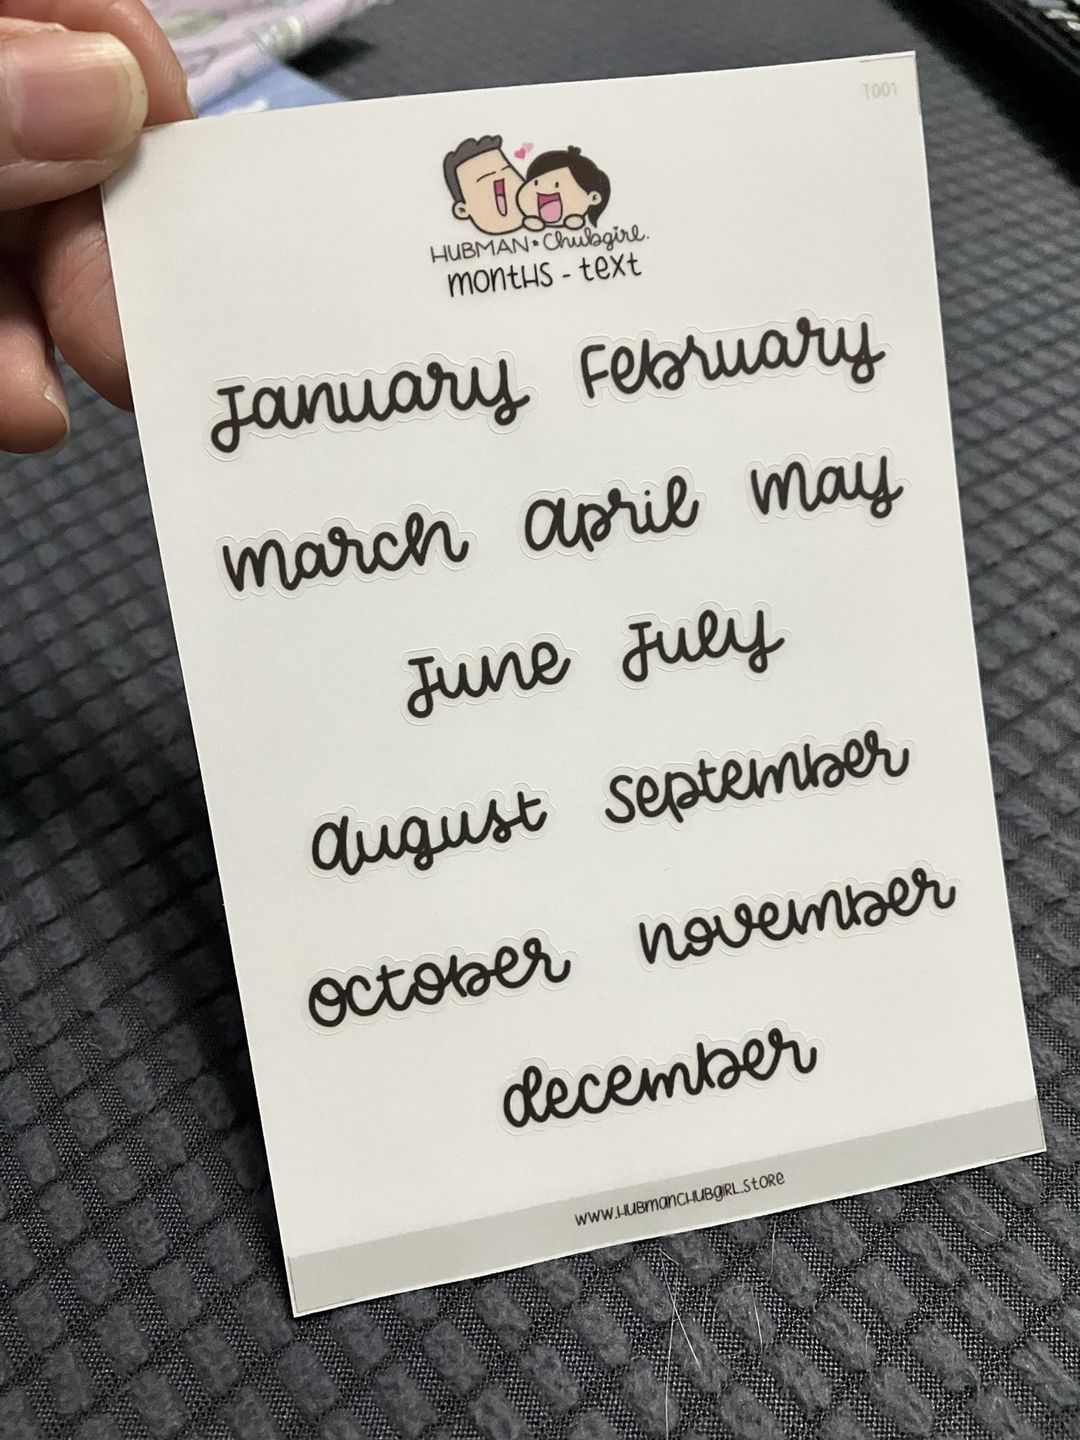 T001
HUBMAN • Chubgirl.
months - text
January February
march april may
June July
august september
october november
december
www.HUBmanCHUBgIRL.store